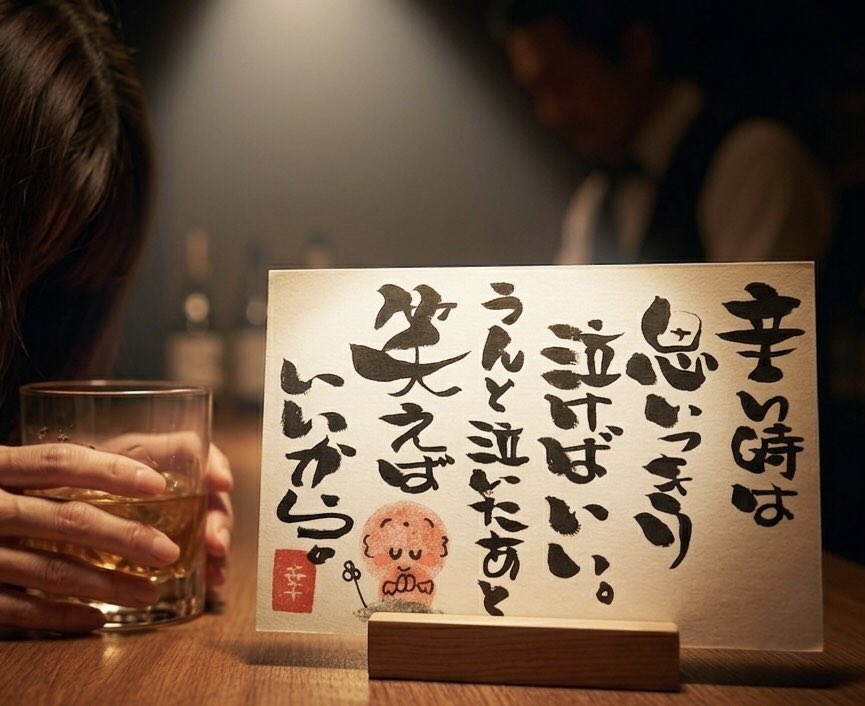 辛い時は
思いっきり
泣けばいい。
うんと泣いたあと
笑えば
いいから。
幸